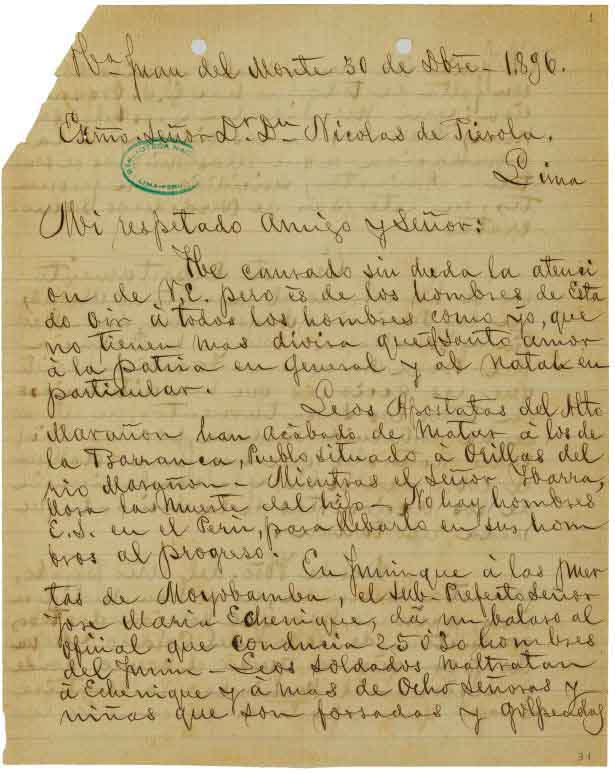 1
Hda Juan del Monte 30 de Dbre - 1896.
Exmo Señor Dr. Dn Nicolas de Pierola.
BIBLIOTECA NAC
LIMA-PERU
Lima
Mi respetado Amigo y Señor:
He canzado sin duda la atenci
on de V.E. pero és de los hombres de Esta
do oir à todos los hombres como yo, que
no tienen mas divisa que el Santo amor
à la patria en general y al natal en
particular.
Leos Apostatas del Alto
Marañon han acabado de matar à los de
la Barranca, Pueblo situado à Orillas del
rio Marañon - Mientras el Señor Ybarra,
llora la muerte del hijo - No hay hombres
E.S. en el Perú, para llebarlo en sus hom
bros al progreso.
En à las puer
tas de Moyobamba, el Sub-Prefecto Señor
Jose Maria Echenique, dá un balazo al
oficial que conducia 25 ó 30 hombres
del Junin - Leos soldados maltratan
à Echenique y à mas de Ocho Señoras y
niñas que son forsadas y golpeadas
31